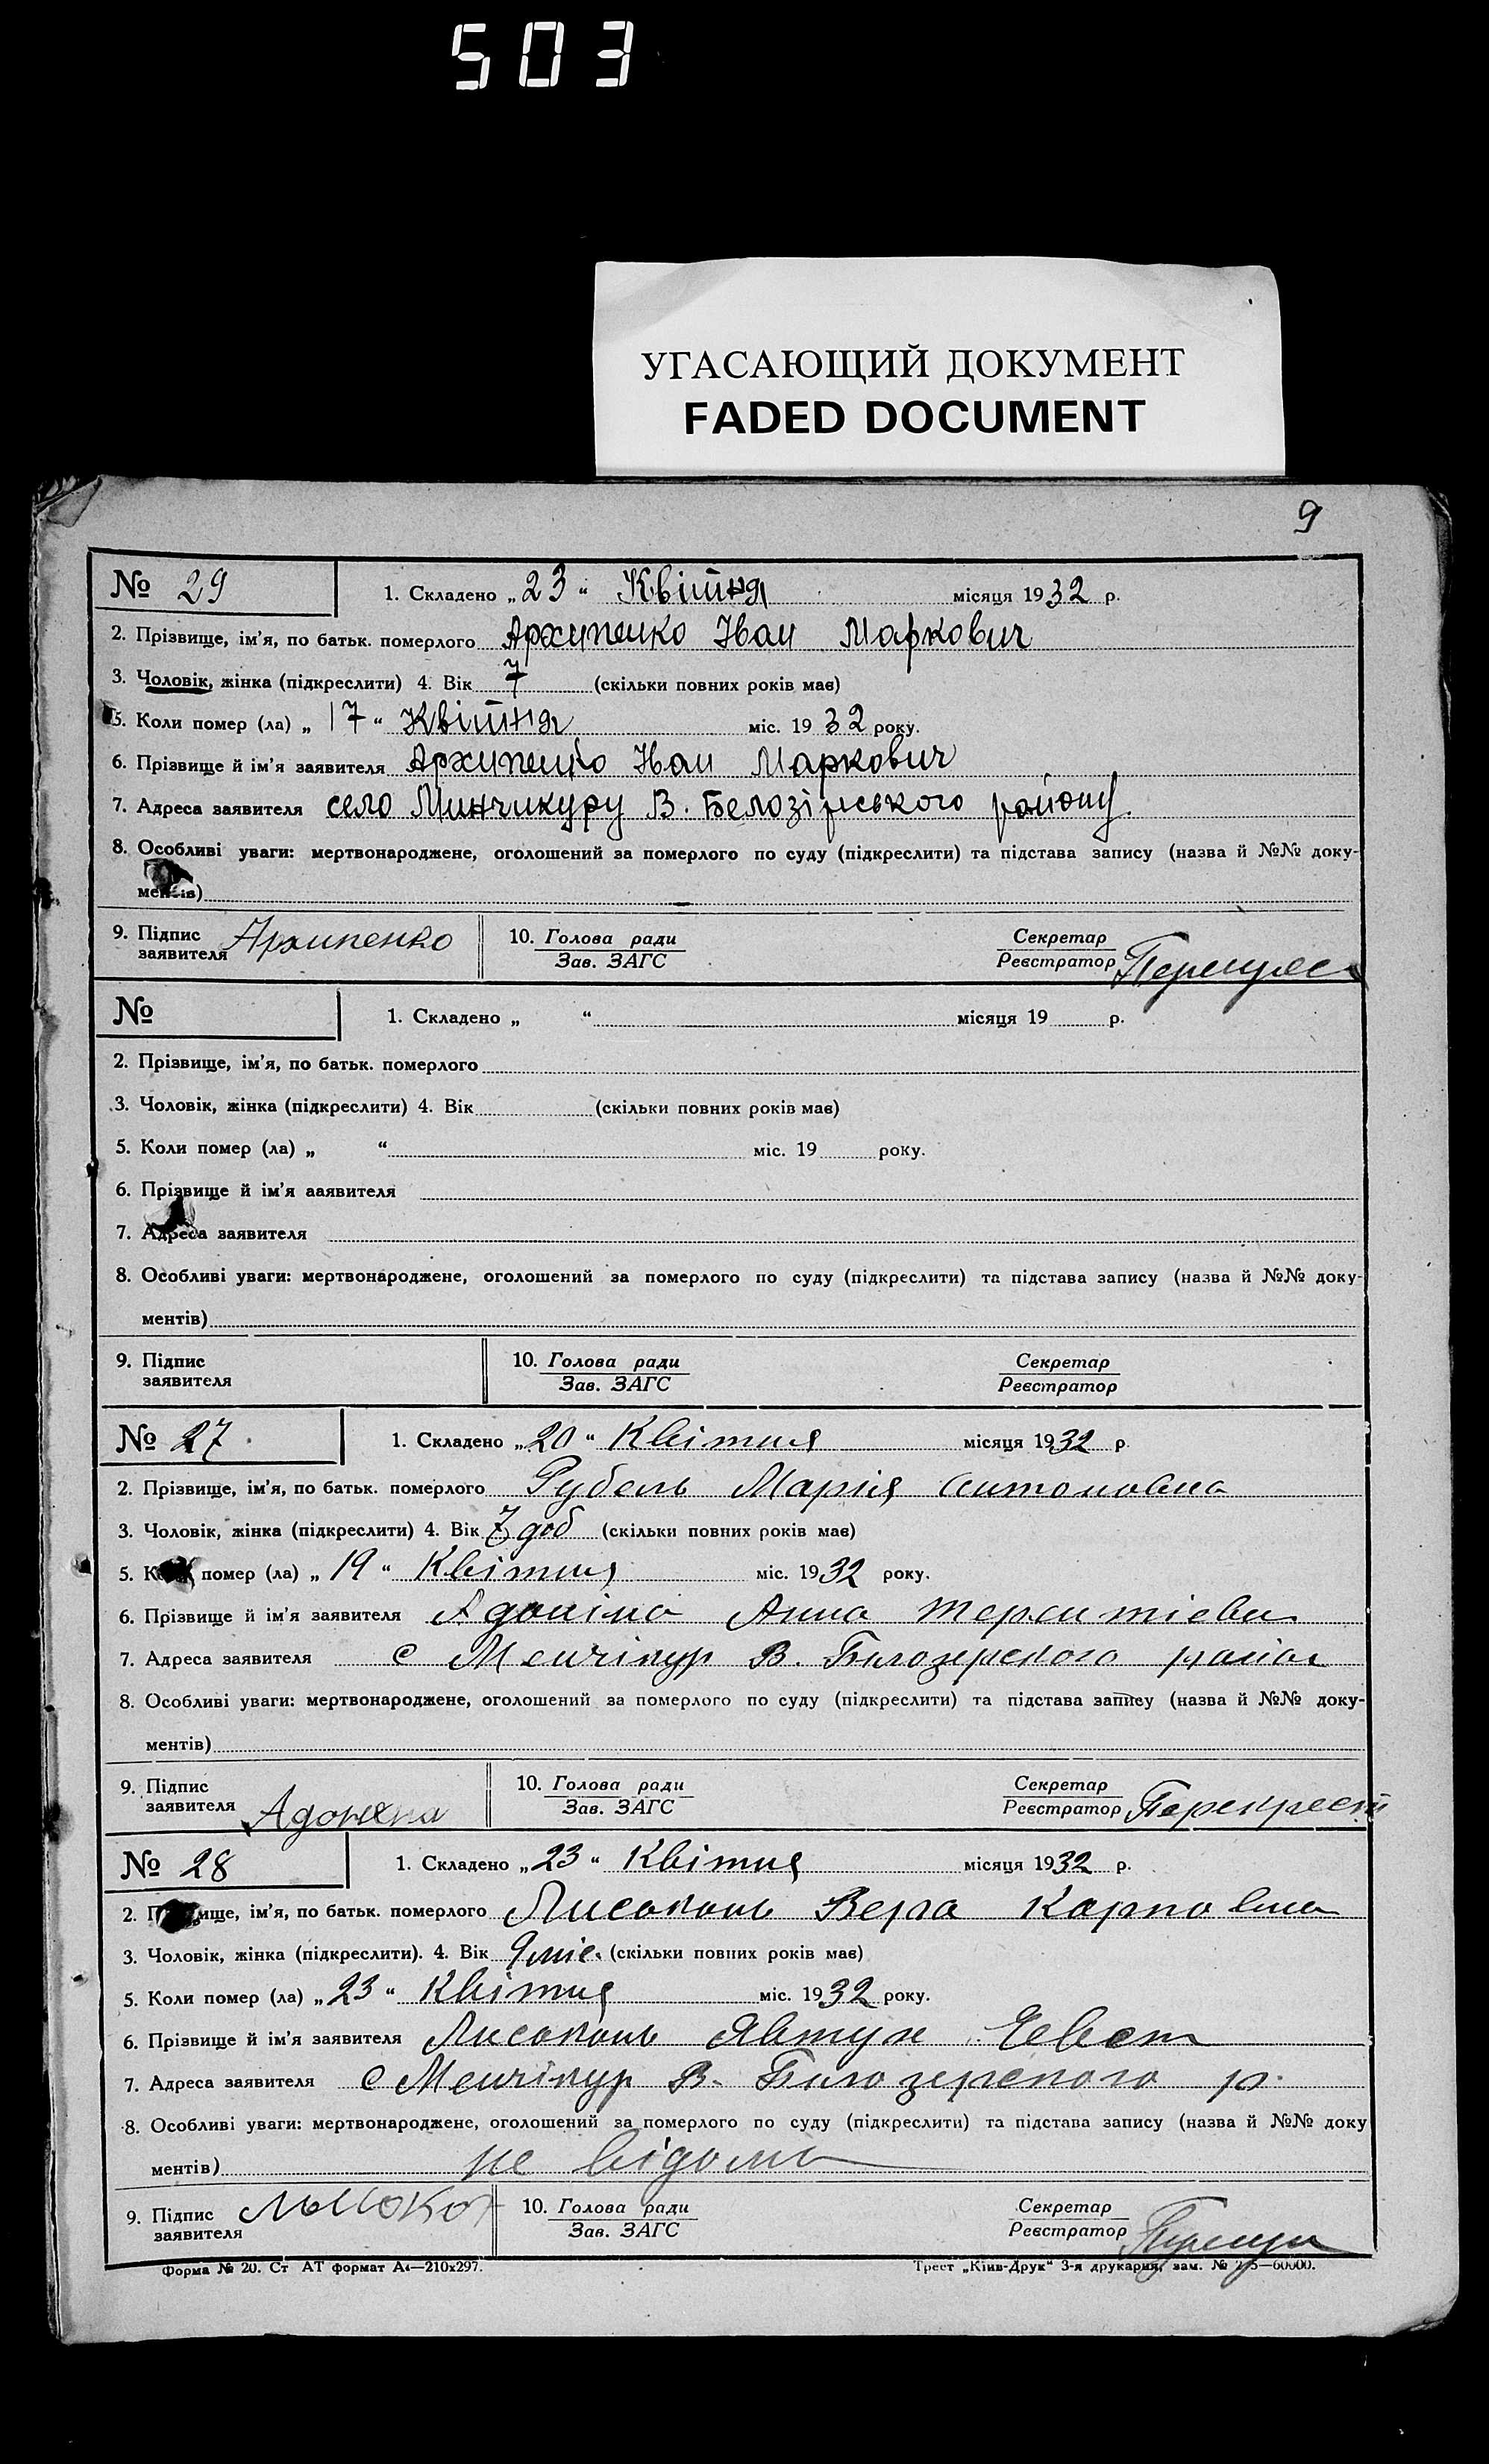 503
УГАСАЮЩИЙ ДОКУМЕНТ
FADED DOCUMENT
9
№ 29 1. Складено „23“ Квітня місяця 1932 р.
2. Прізвище, ім'я, по батьк. померлого Архипенко Іван Маркович
3. Чоловік, жінка (підкреслити) 4. Вік 7 (скільки повних років має)
5. Коли помер (ла) „17“ Квітня міс. 1932 року.
6. Прізвище й ім'я заявителя Архипенко Іван Маркович
7. Адреса заявителя село Минчикуру В. Белозірського району.
8. Особливі уваги: мертвонароджене, оголошений за померлого по суду (підкреслити) та підстава запису (назва й №№ доку-
ментів)
9. Підпис заявителя Архипенко 10. Голова ради Зав. ЗАГС Секретар Реєстратор
№ 1. Складено „ “ місяця 19 р.
2. Прізвище, ім'я, по батьк. померлого
3. Чоловік, жінка (підкреслити) 4. Вік (скільки повних років має)
5. Коли помер (ла) „ “ міс. 19 року.
6. Прізвище й ім'я ааявителя
7. Адреса заявителя
8. Особливі уваги: мертвонароджене, оголошений за померлого по суду (підкреслити) та підстава запису (назва й №№ доку-
ментів)
9. Підпис заявителя 10. Голова ради Зав. ЗАГС Секретар Реєстратор
№ 27 1. Складено „20“ Квітня місяця 1932 р.
2. Прізвище, ім'я, по батьк. померлого Рубель Марія Антоновна
3. Чоловік, жінка (підкреслити) 4. Вік 7 доб (скільки повних років має)
5. Коли помер (ла) „19“ Квітня міс. 1932 року.
6. Прізвище й ім'я заявителя Адоніна Анна
7. Адреса заявителя с Менчікур В. Билозерского район
8. Особливі уваги: мертвонароджене, оголошений за померлого по суду (підкреслити) та підстава запису (назва й №№ доку-
ментів)
9. Підпис заявителя 10. Голова ради Зав. ЗАГС Секретар Реєстратор Перекрест
№ 28 1. Складено „23“ Квітня місяця 1932 р.
2. Прізвище, ім'я, по батьк. померлого Лисоконь Вера Карповна
3. Чоловік, жінка (підкреслити). 4. Вік 9 міс. (скільки повних років має)
5. Коли помер (ла) „23“ Квітня міс. 1932 року.
6. Прізвище й ім'я заявителя Лисоконь Явтух
7. Адреса заявителя с Менчікур В. Билозерского р.
8. Особливі уваги: мертвонароджене, оголошений за померлого по суду (підкреслити) та підстава запису (назва й №№ доку
ментів) не відомо
9. Підпис заявителя 10. Голова ради Зав. ЗАГС Секретар Реєстратор
Форма № 20. Ст АТ формат А4—210х297. Трест „Київ-Друк“ 3-я друкарня, зам. №